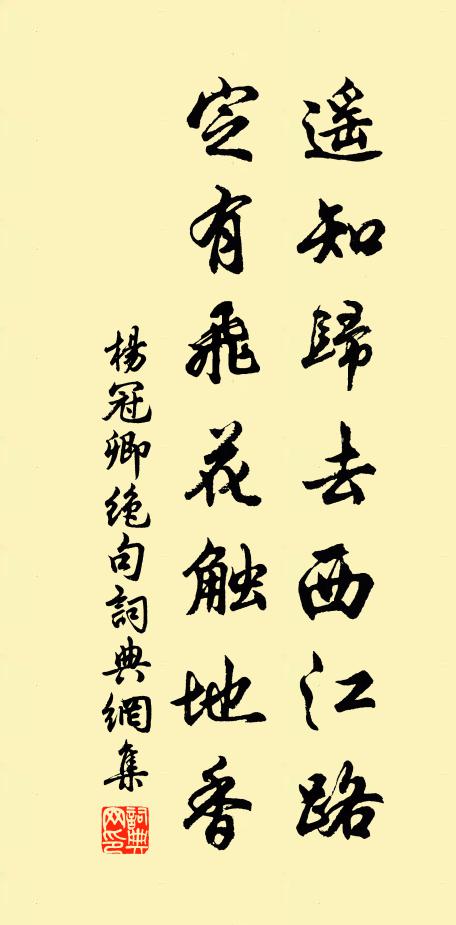 遥知歸去西江路
定有飛花触地香
楊冠卿絶句詞典網集
詞典网印